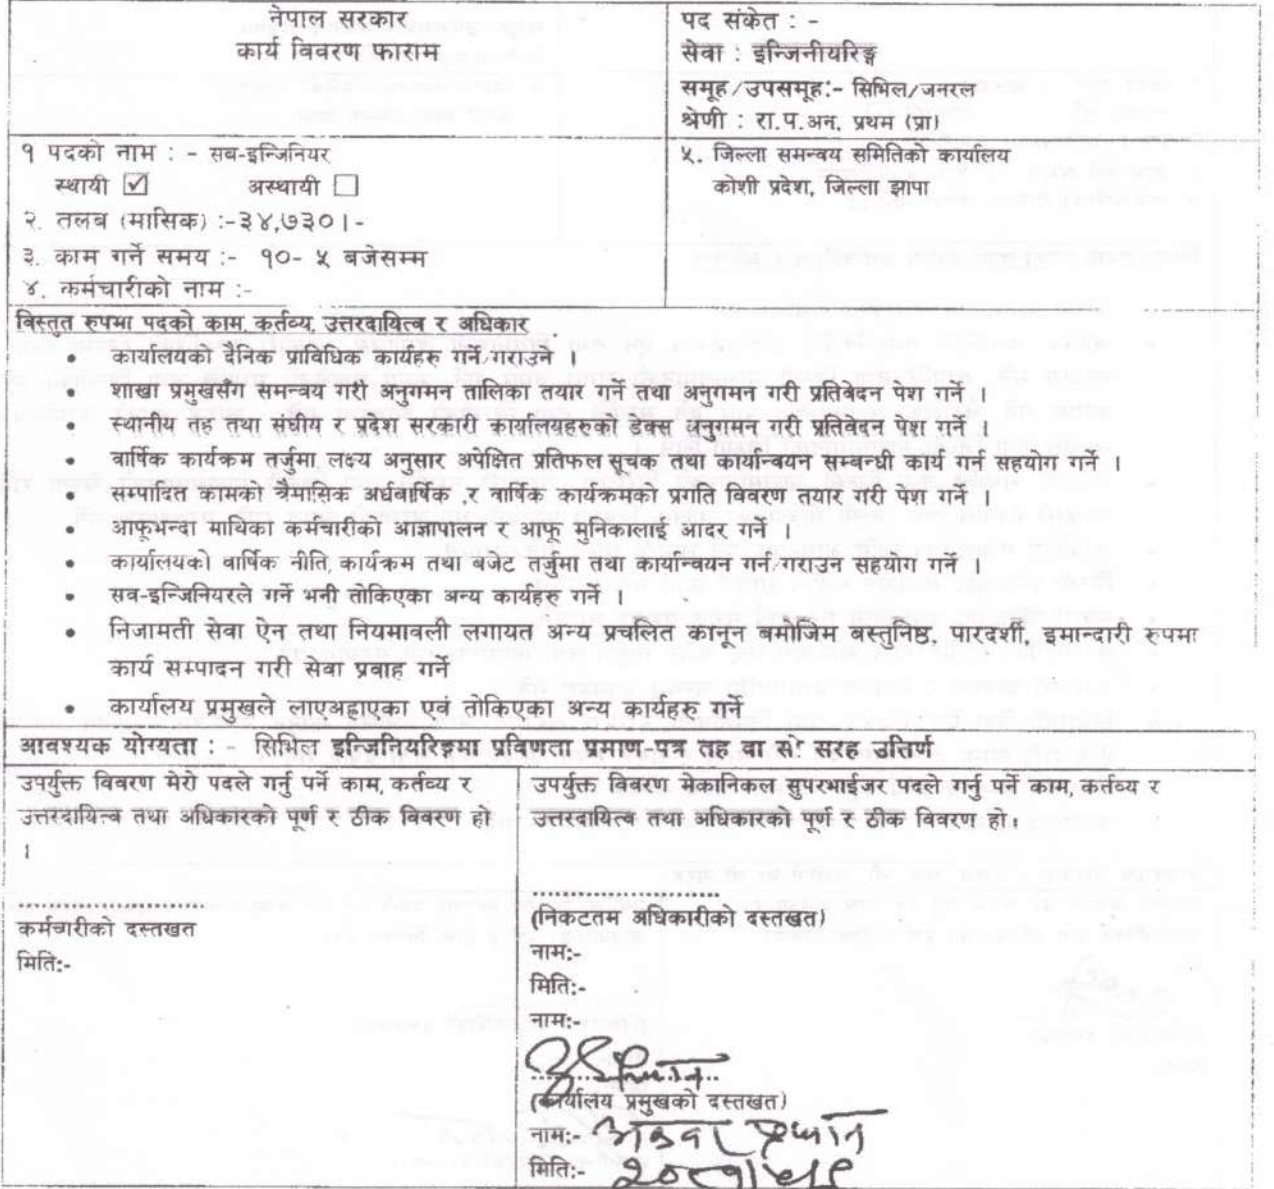 नेपाल सरकार
कार्य विवरण फाराम
पद संकेत : -
सेवा : इन्जिनीयरिङ्ग
समूह/उपसमूह:- सिभिल/जनरल
श्रेणी : रा.प.अन. प्रथम (प्रा)
१ पदको नाम : - सब-इन्जिनियर
स्थायी ☑ अस्थायी ☐
२. तलब (मासिक) :-३४,७३०।-
३. काम गर्ने समय :- १०- ५ बजेसम्म
४. कर्मचारीको नाम :-
५. जिल्ला समन्वय समितिको कार्यालय
कोशी प्रदेश, जिल्ला झापा
विस्तुत रुपमा पदको काम, कर्तव्य, उत्तरदायित्व र अधिकार
• कार्यालयको दैनिक प्राविधिक कार्यहरु गर्ने/गराउने ।
• शाखा प्रमुखसँग समन्वय गरी अनुगमन तालिका तयार गर्ने तथा अनुगमन गरी प्रतिवेदन पेश गर्ने ।
• स्थानीय तह तथा संघीय र प्रदेश सरकारी कार्यालयहरुको डेक्स अनुगमन गरी प्रतिवेदन पेश गर्ने ।
• वार्षिक कार्यक्रम तर्जुमा, लक्ष्य अनुसार अपेक्षित प्रतिफल सूचक तथा कार्यान्वयन सम्बन्धी कार्य गर्न सहयोग गर्ने ।
• सम्पादित कामको त्रैमासिक अर्धवार्षिक ,र वार्षिक कार्यक्रमको प्रगति विवरण तयार गरी पेश गर्ने ।
• आफूभन्दा माथिका कर्मचारीको आज्ञापालन र आफू मुनिकालाई आदर गर्ने ।
• कार्यालयको वार्षिक नीति, कार्यक्रम तथा बजेट तर्जुमा तथा कार्यान्वयन गर्न/गराउन सहयोग गर्ने ।
• सव-इन्जिनियरले गर्ने भनी तोकिएका अन्य कार्यहरु गर्ने ।
• निजामती सेवा ऐन तथा नियमावली लगायत अन्य प्रचलित कानून बमोजिम बस्तुनिष्ठ, पारदर्शी, इमान्दारी रुपमा
कार्य सम्पादन गरी सेवा प्रवाह गर्ने
• कार्यालय प्रमुखले लाएअह्राएका एवं तोकिएका अन्य कार्यहरु गर्ने
आवश्यक योग्यता : - सिभिल इन्जिनियरिङ्गमा प्रविणता प्रमाण-पत्र तह वा सो सरह उत्तिर्ण
उपर्युक्त विवरण मेरो पदले गर्नु पर्ने काम, कर्तव्य र
उत्तरदायित्व तथा अधिकारको पूर्ण र ठीक विवरण हो
।
कर्मचारीको दस्तखत
मिति:-
उपर्युक्त विवरण मेकानिकल सुपरभाईजर पदले गर्नु पर्ने काम, कर्तव्य र
उत्तरदायित्व तथा अधिकारको पूर्ण र ठीक विवरण हो।
(निकटतम अधिकारीको दस्तखत)
नाम:-
मिति:-
नाम:-
(कार्यालय प्रमुखको दस्तखत)
नाम:-
मिति:-